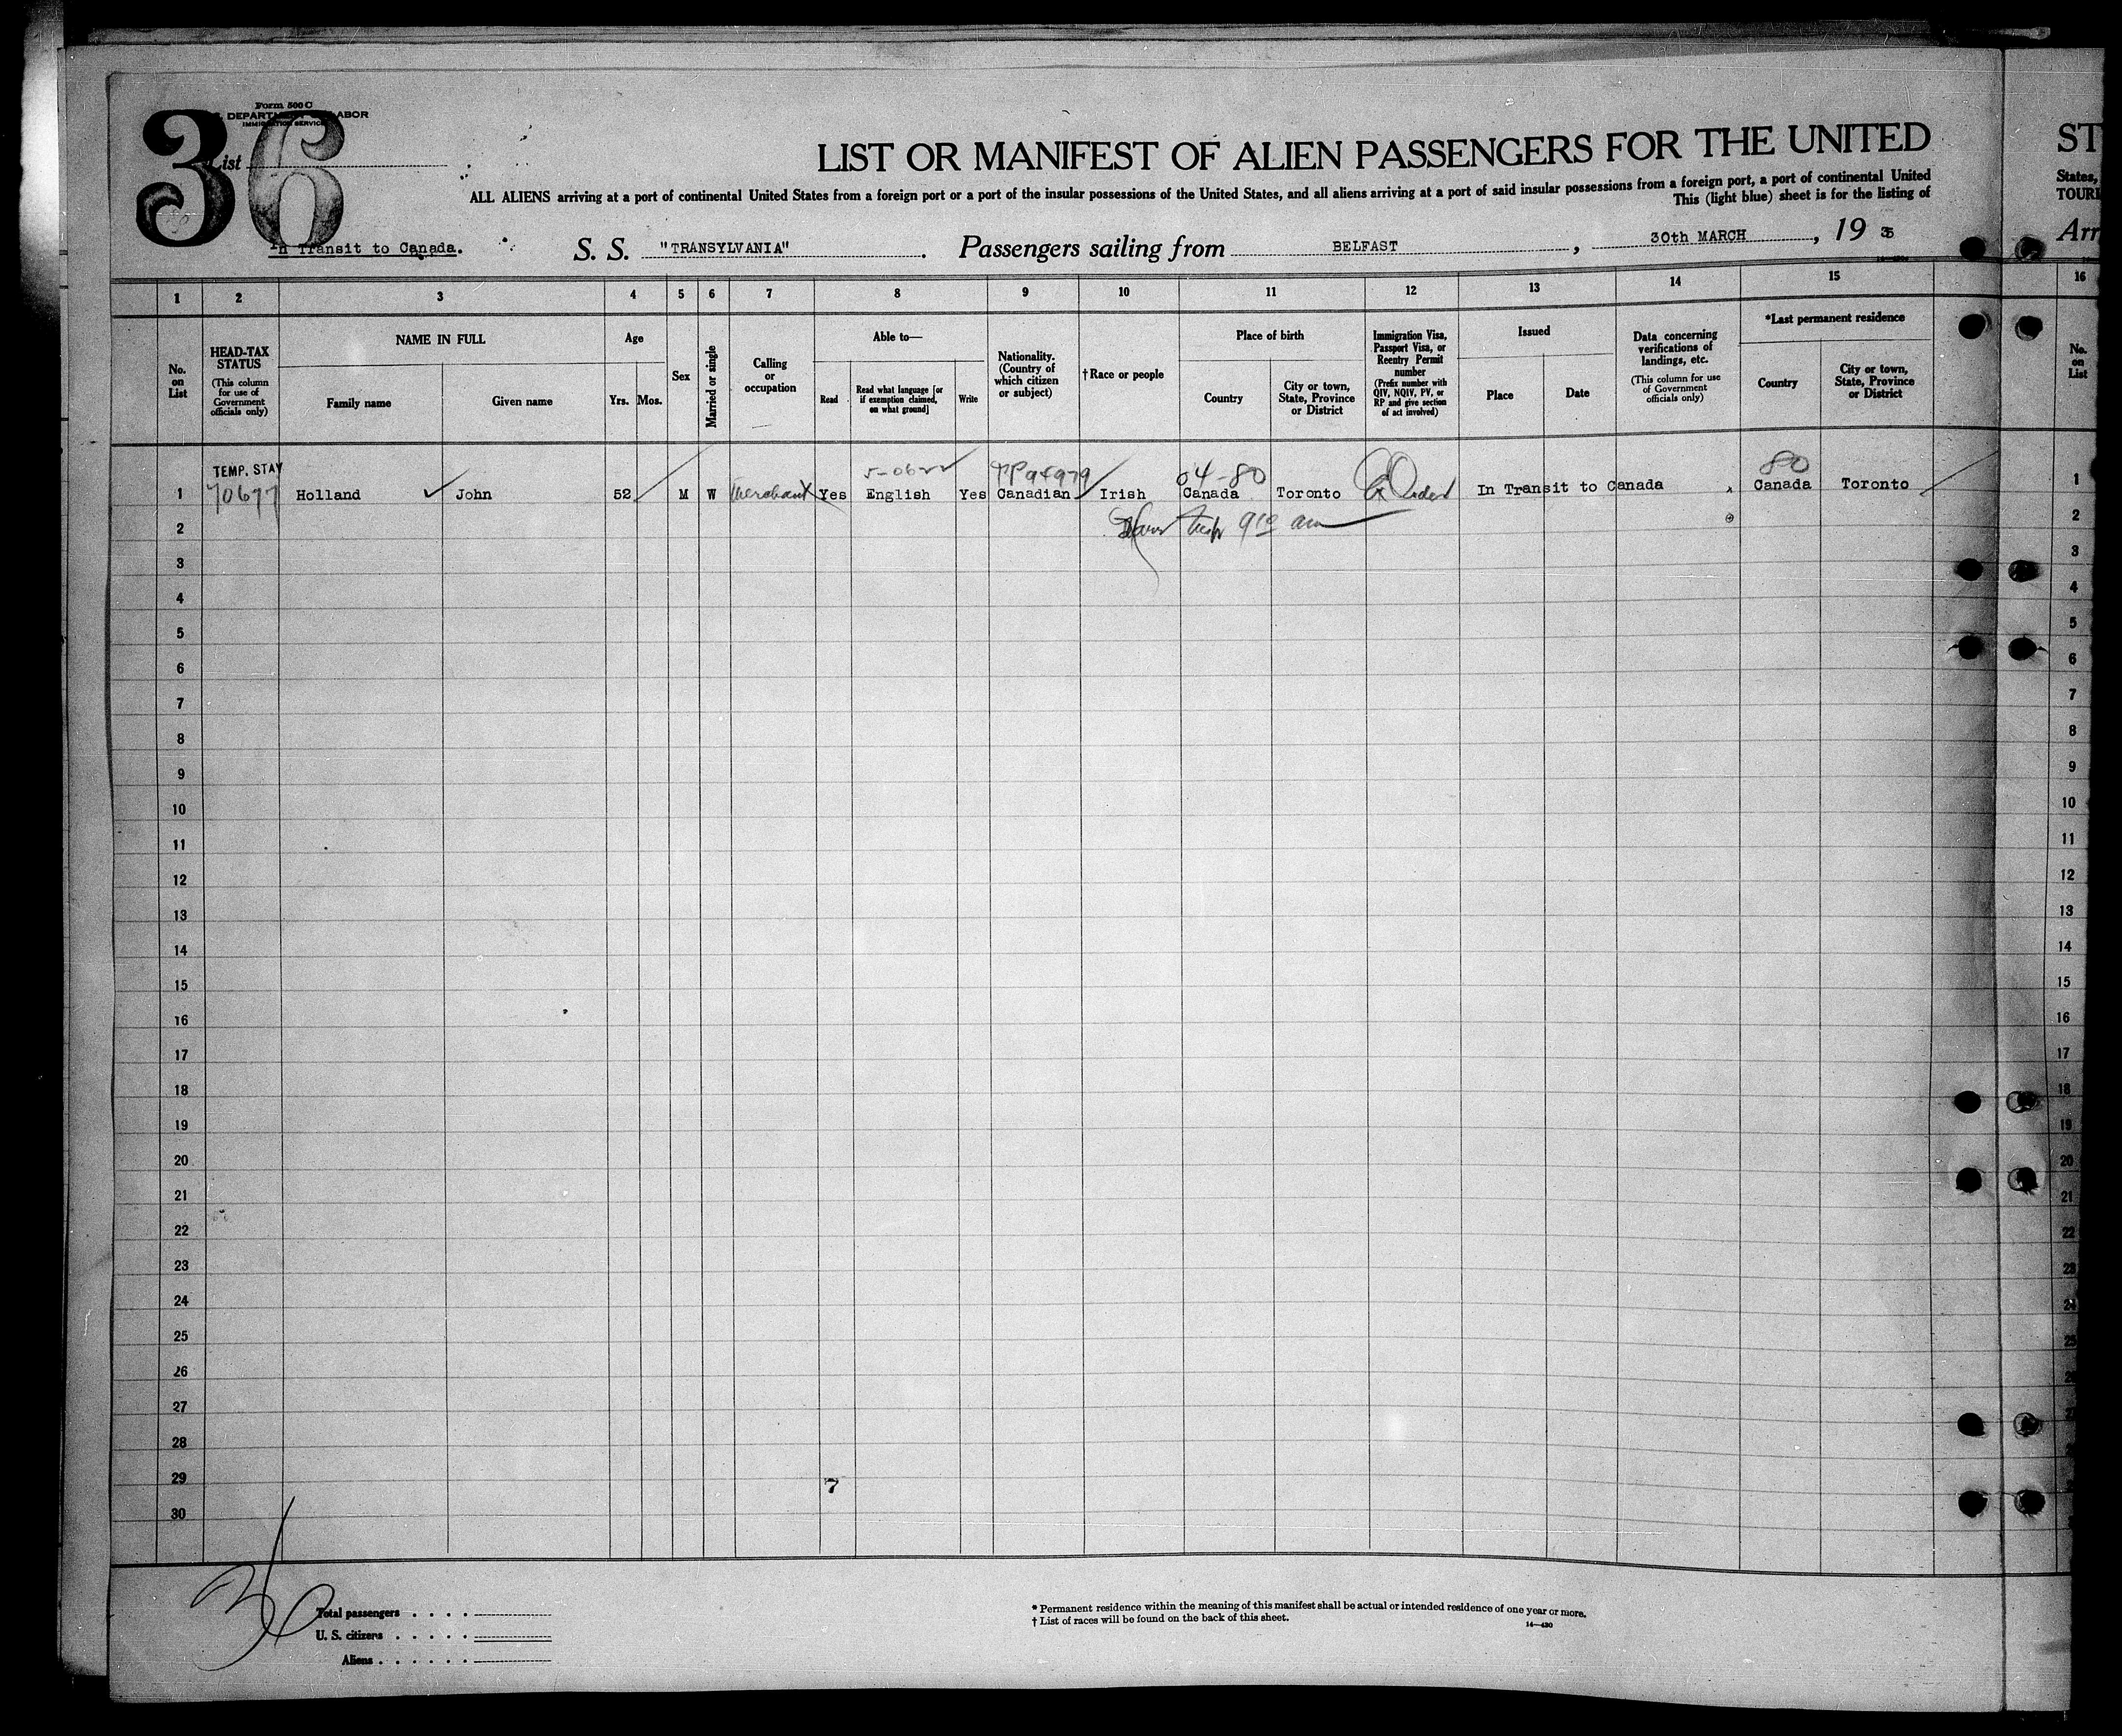 36
Form 500 C
DEPARTMENT LABOR
IMMIGRATION SERVICE
List
LIST OR MANIFEST OF ALIEN PASSENGERS FOR THE UNITED
ST
ALL ALIENS arriving at a port of continental United States from a foreign port or a port of the insular possessions of the United States, and all aliens arriving at a port of said insular possessions from a foreign port, a port of continental United
States,
This (light blue) sheet is for the listing of
TOURI
In Transit to Canada.
S. S. "TRANSYLVANIA". Passengers sailing from BELFAST, 30th MARCH, 19 35
Arr
1 2 3 4 5 6 7 8 9 10 11 12 13 14 15 16
No. on List
HEAD-TAX STATUS (This column for use of Government officials only)
NAME IN FULL
Family name
Given name
Age
Yrs. Mos.
Sex
Married or single
Calling or occupation
Able to—
Read
Read what language [or if exemption claimed, on what ground]
Write
Nationality. (Country of which citizen or subject)
†Race or people
Place of birth
Country
City or town, State, Province or District
Immigration Visa, Passport Visa, or Reentry Permit number (Prefix number with QIV, NQIV, PV, or RP and give section of act involved)
Issued
Place
Date
Data concerning verifications of landings, etc. (This column for use of Government officials only)
*Last permanent residence
Country
City or town, State, Province or District
No. on List
TEMP. STAY 5-0622 PP94979 04-80 80
1 70677 Holland John 52 M W Merchant Yes English Yes Canadian Irish Canada Toronto In Transit to Canada Canada Toronto 1
2 9 10 am 2
3 3
4 4
5 5
6 6
7 7
8 8
9 9
10 10
11 11
12 12
13 13
14 14
15 15
16 16
17 17
18 18
19 19
20 20
21 21
22 22
23 23
24 24
25 25
26
27
28
29 7
30
36
Total passengers . . . .
U. S. citizens . . . . .
Aliens . . . . . .
* Permanent residence within the meaning of this manifest shall be actual or intended residence of one year or more.
† List of races will be found on the back of this sheet.
14—430